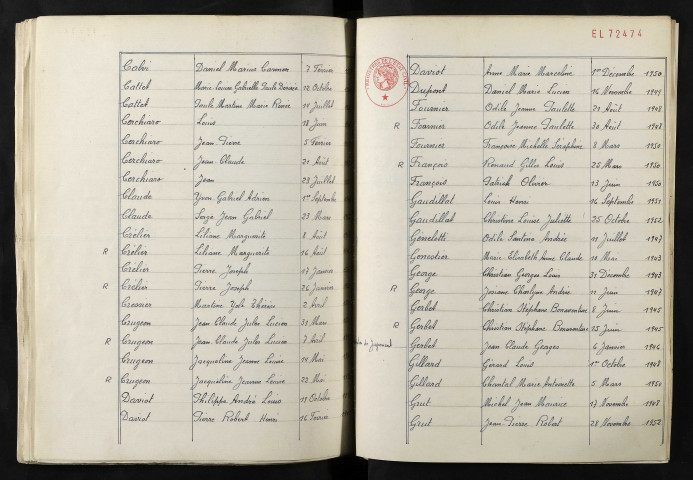 Calvi Daniel Marius Carmen 7 Février
Cattet Marie Louise Gabrielle Paule 12 Octobre
Cattet Paule Martine Marie Renée 11 Juillet
Cerchiaro Louis 18 Juin
Cerchiaro Jean Pierre 5 Février
Cerchiaro Jean Claude 21 Août
Cerchiaro Jean 23 Juillet
Claude Yvon Gabriel Adrien 1er Septembre
Claude Serge Jean Gabriel 23 Mars
Crélier Liliane Marguerite 8 Août
R Crélier Liliane Marguerite 16 Août
Crélier Pierre Joseph 17 Janvier
R Crélier Pierre Joseph 26 Janvier
Cressier Martine Thérèse 2 Avril
Crugeon Jean Claude Jules Lucien 31 Mars
R Crugeon Jean Claude Jules Lucien 7 Avril
Crugeon Jacqueline Jeanne Louise 14 Mai
R Crugeon Jacqueline Jeanne Louise 22 Mai
Daviot Philippe André Louis 11 Octobre
Daviot Pierre Robert Henri 16 Février
EL 72474
Daviot Anne Marie Marceline 1er Décembre 1950
Drepont Daniel Marie Lucien 16 Novembre 1949
Fournier Odile Jeanne Paulette 21 Août 1948
R Fournier Odile Jeanne Paulette 30 Août 1948
Fournier Françoise Michelle Séraphine 8 Mars 1950
R François Renaud Gilles Louis 25 Mars 1950
François Patrick Olivier 13 Juin 1950
Gaudillat Louis Henri 16 Septembre 1951
Gaudillat Christiane Louise Juliette 25 Octobre 1952
Géneletti Odile Santina Andrée 11 Juillet 1947
Gonestier Marie Elisabeth Anne Claude 10 Mai 1943
George Christian Georges Louis 31 Décembre 1943
R George Josiane Charlyne Andrée 11 Juin 1947
Gerbet Christian Stéphane Bonaventure 8 Juin 1945
R Gerbet Christian Stéphane Bonaventure 15 Juin 1945
de Jugement Gerbet Jean Claude Georges 6 Janvier 1946
Gillard Gérard Louis 1er Octobre 1948
Gillard Chantal Marie Antoinette 5 Mars 1950
Grut Michel Jean Maurice 17 Novembre 1948
Grut Jean-Pierre Robert 28 Novembre 1952